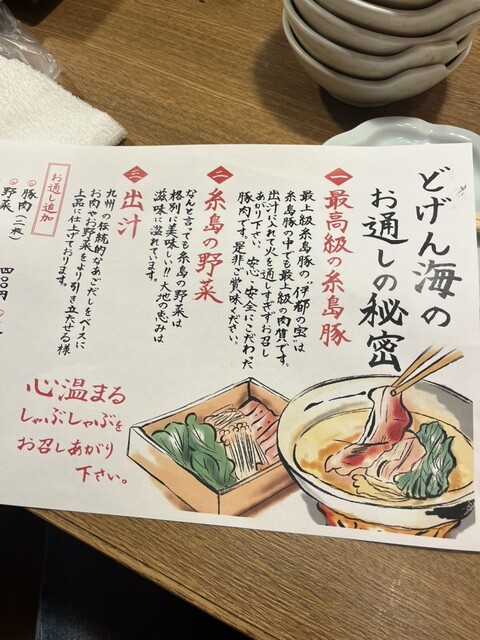 どげん海の
お通しの秘密
一 最高級の糸島豚
最上級糸島豚の“伊都の宝”は
糸島豚の中でも最上級の肉質です。
出汁に入れて火を通しすぎずお召し
あがり下さい、安心・安全にこだわった
豚肉です。是非ご賞味ください。
二 糸島の野菜
なんと言っても糸島の野菜は
格別に美味しい!!大地の恵みは
滋味に溢れています。
三 出汁
九州の伝統的なあごだしをベースに
お肉やお野菜をより引き立たせる様
上品に仕上げております。
お通し追加
豚肉(二枚)
野菜
四〇〇円
心温まる
しゃぶしゃぶを
お召しあがり
下さい。